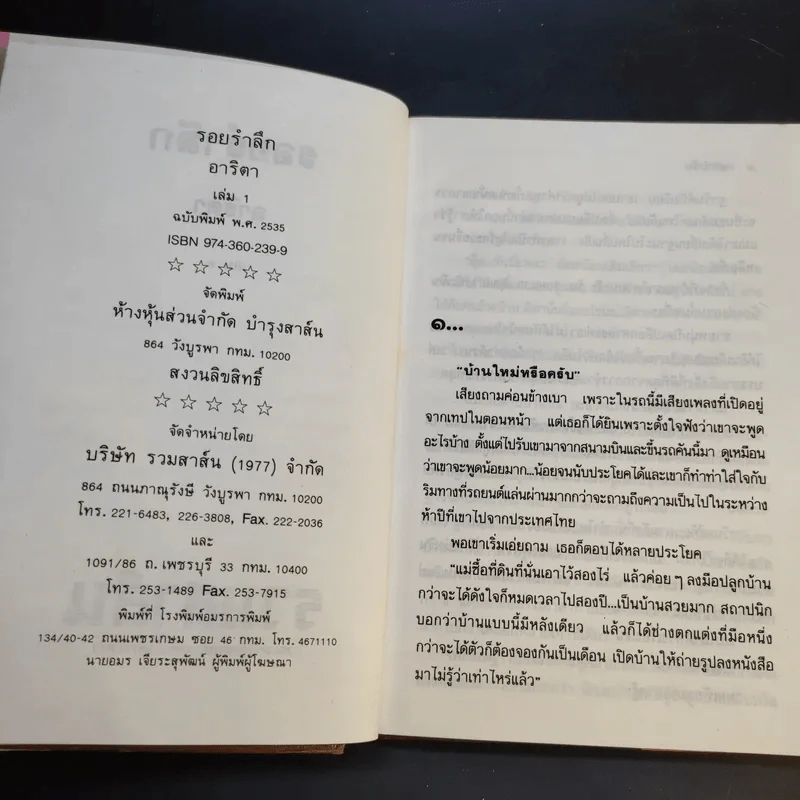 รอยรำลึก
อาริตา
เล่ม 1
ฉบับพิมพ์ พ.ศ. 2535
ISBN 974-360-239-9
☆ ☆ ☆ ☆ ☆
จัดพิมพ์
ห้างหุ้นส่วนจำกัด บำรุงสาส์น
864 วังบูรพา กทม. 10200
สงวนลิขสิทธิ์
☆ ☆ ☆ ☆ ☆
จัดจำหน่ายโดย
บริษัท รวมสาส์น (1977) จำกัด
864 ถนนภาณุรังษี วังบูรพา กทม. 10200
โทร. 221-6483, 226-3808, Fax. 222-2036
และ
1091/86 ถ.เพชรบุรี 33 กทม. 10400
โทร. 253-1489 Fax. 253-7915
พิมพ์ที่ โรงพิมพ์อมรการพิมพ์
134/40-42 ถนนเพชรเกษม ซอย 46 กทม. โทร. 4671110
นายอมร เจียระสุพัฒน์ ผู้พิมพ์ผู้โฆษณา
๑...
"บ้านใหม่หรือครับ"
เสียงถามค่อนข้างเบา เพราะในรถนี้มีเสียงเพลงที่เปิดอยู่
จากเทปในตอนหน้า แต่เธอก็ได้ยินเพราะตั้งใจฟังว่าเขาจะพูด
อะไรบ้าง ตั้งแต่ไปรับเขามาจากสนามบินและขึ้นรถคันนี้มา ดูเหมือน
ว่าเขาจะพูดน้อยมาก...น้อยจนนับประโยคได้และเขาก็ทำท่าใส่ใจกับ
ริมทางที่รถยนต์แล่นผ่านมากกว่าจะถามถึงความเป็นไปในระหว่าง
ห้าปีที่เขาไปจากประเทศไทย
พอเขาเริ่มเอ่ยถาม เธอก็ตอบได้หลายประโยค
"แม่ซื้อที่ดินที่นั่นเอาไว้สองไร่ แล้วค่อย ๆ ลงมือปลูกบ้าน
กว่าจะได้ดังใจก็หมดเวลาไปสองปี...เป็นบ้านสวยมาก สถาปนิก
บอกว่าบ้านแบบนี้มีหลังเดียว แล้วก็ได้ช่างตกแต่งที่มือหนึ่ง
กว่าจะได้ตัวก็ต้องจองกันเป็นเดือน เปิดบ้านให้ถ่ายรูปลงหนังสือ
มาไม่รู้ว่าเท่าไหร่แล้ว"